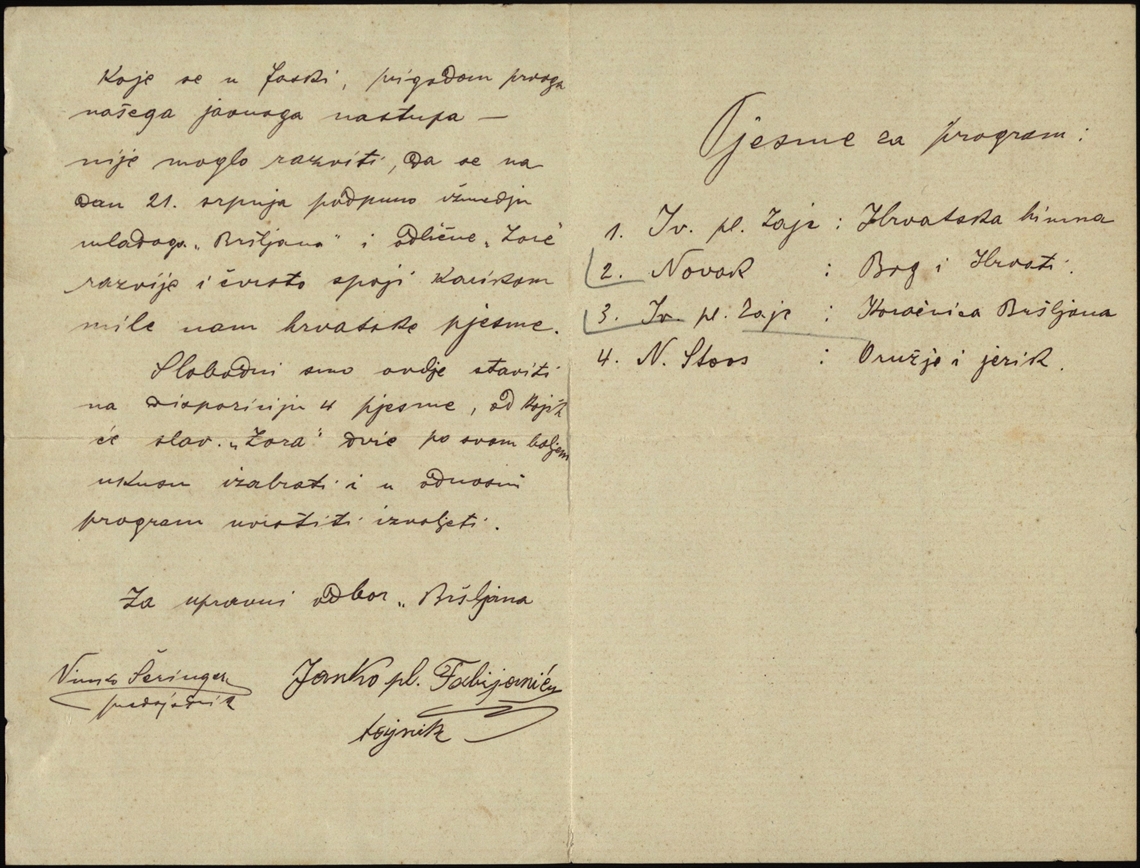 koje se u Jaski, prigodom prvoga
našega javnoga nastupa —
nije moglo razviti, da se na
dan 21. srpnja podpuno izmedju
mladoga „Bršljana" i odlične „Zore"
razvije i čvrsto spoji karikom
mile nam hrvatske pjesme.
Slobodni smo ovdje staviti
na dispoziciju 4 pjesme, od kojih
će slav. „Zora" dvie po svom boljem
ukusu izabrati i u odnosni
program uvrstiti izvoljeti.
Za upravni odbor „Bršljana
Vinko Šeringer
predsjednik
Janko pl. Fabijanić
tajnik
Pjesme za program:
1. Iv. pl. Zajc : Hrvatska himna
2. Novak : Bog i Hrvati.
3. Iv. pl. Zajc : Koračnica Bršljana
4. N. Stoos : Oružje i jezik.